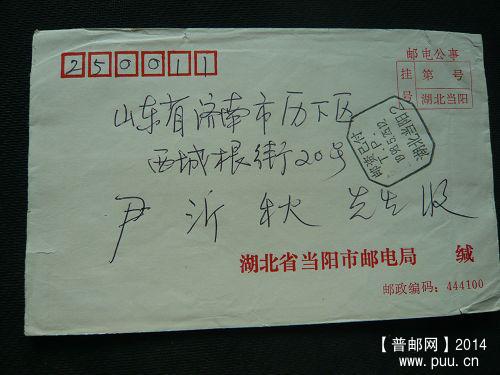 250011
邮电公事
挂 第 号
号 湖北当阳
山东省济南市历下区
西城根街20号
尹沂秋 先生收
邮资已付
T.P.
湖北当阳
湖北省当阳市邮电局 缄
邮政编码：444100
【普邮网】2014
www.puu.cn